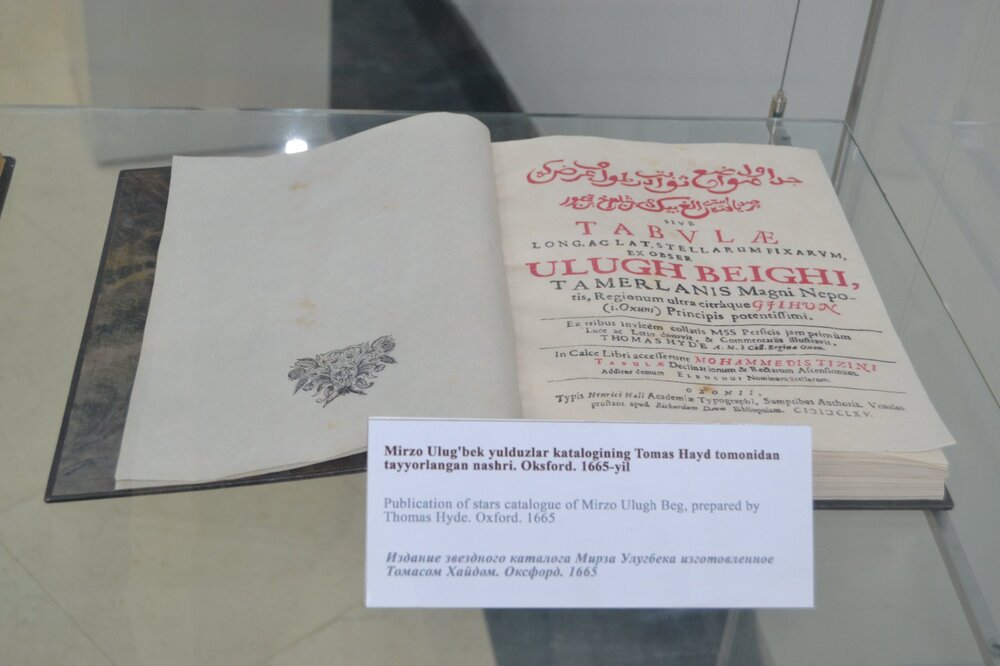 جداول مواضع ثوابت در طول و عرض كه
SIVE
TABVLÆ
LONG. AC LAT. STELLARUM FIXARVM,
EX OBSER
ULUGH BEIGHI,
TAMERLANIS Magni Nepo-
tis, Regionum ultra citráque GJIHUN
(i. Oxum) Principis potentissimi.
Ex tribus invicem collatis MSS Persicis jam primùm
Luce ac Latio donavit, & Commentariis illustravit,
THOMAS HYDE A. M. è Coll. Reginæ Oxon.
In Calce Libri accesserunt MOHAMMEDIS TIZINI
TABULÆ Declinationum & Rectarum Ascensionum.
Additur demum ELENCHUS Nominum Stellarum.
OXONII,
Typis Henrici Hall Academiæ Typographi, Sumptibus Authoris, Veneunt
prostant apud Richardum Davis Bibliopolam.
Mirzo Ulug'bek yulduzlar katalogining Tomas Hayd tomonidan
tayyorlangan nashri. Oksford. 1665-yil
Publication of stars catalogue of Mirzo Ulugh Beg, prepared by
Thomas Hyde. Oxford. 1665
Издание звездного каталога Мирза Улугбека изготовленное
Томасом Хайдом. Оксфорд. 1665